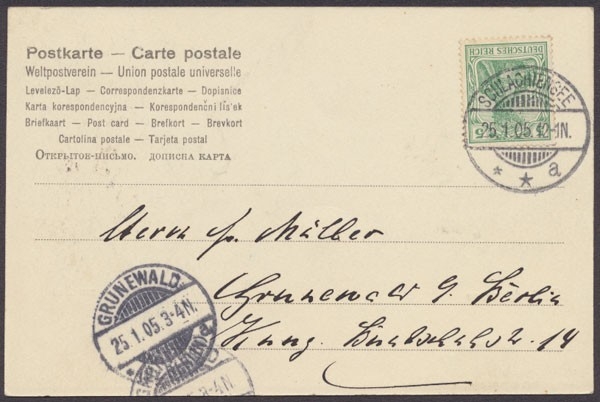 Postkarte — Carte postale
Weltpostverein — Union postale universelle
Levelező-Lap — Correspondenzkarte — Dopisnice
Karta korespondencyjna — Korespondenčni lis'ek
Briefkaart — Post card — Brefkort — Brevkort
Cartolina postale — Tarjeta postal
Открытое-письмо. дописна карта
DEUTSCHES REICH
5
SCHLACHTENSEE
25.1.05.12-1N.
* * a
Herrn Müller
Grunewald b. Berlin
14
GRUNEWALD
25.1.05.3-4N.
3-4N